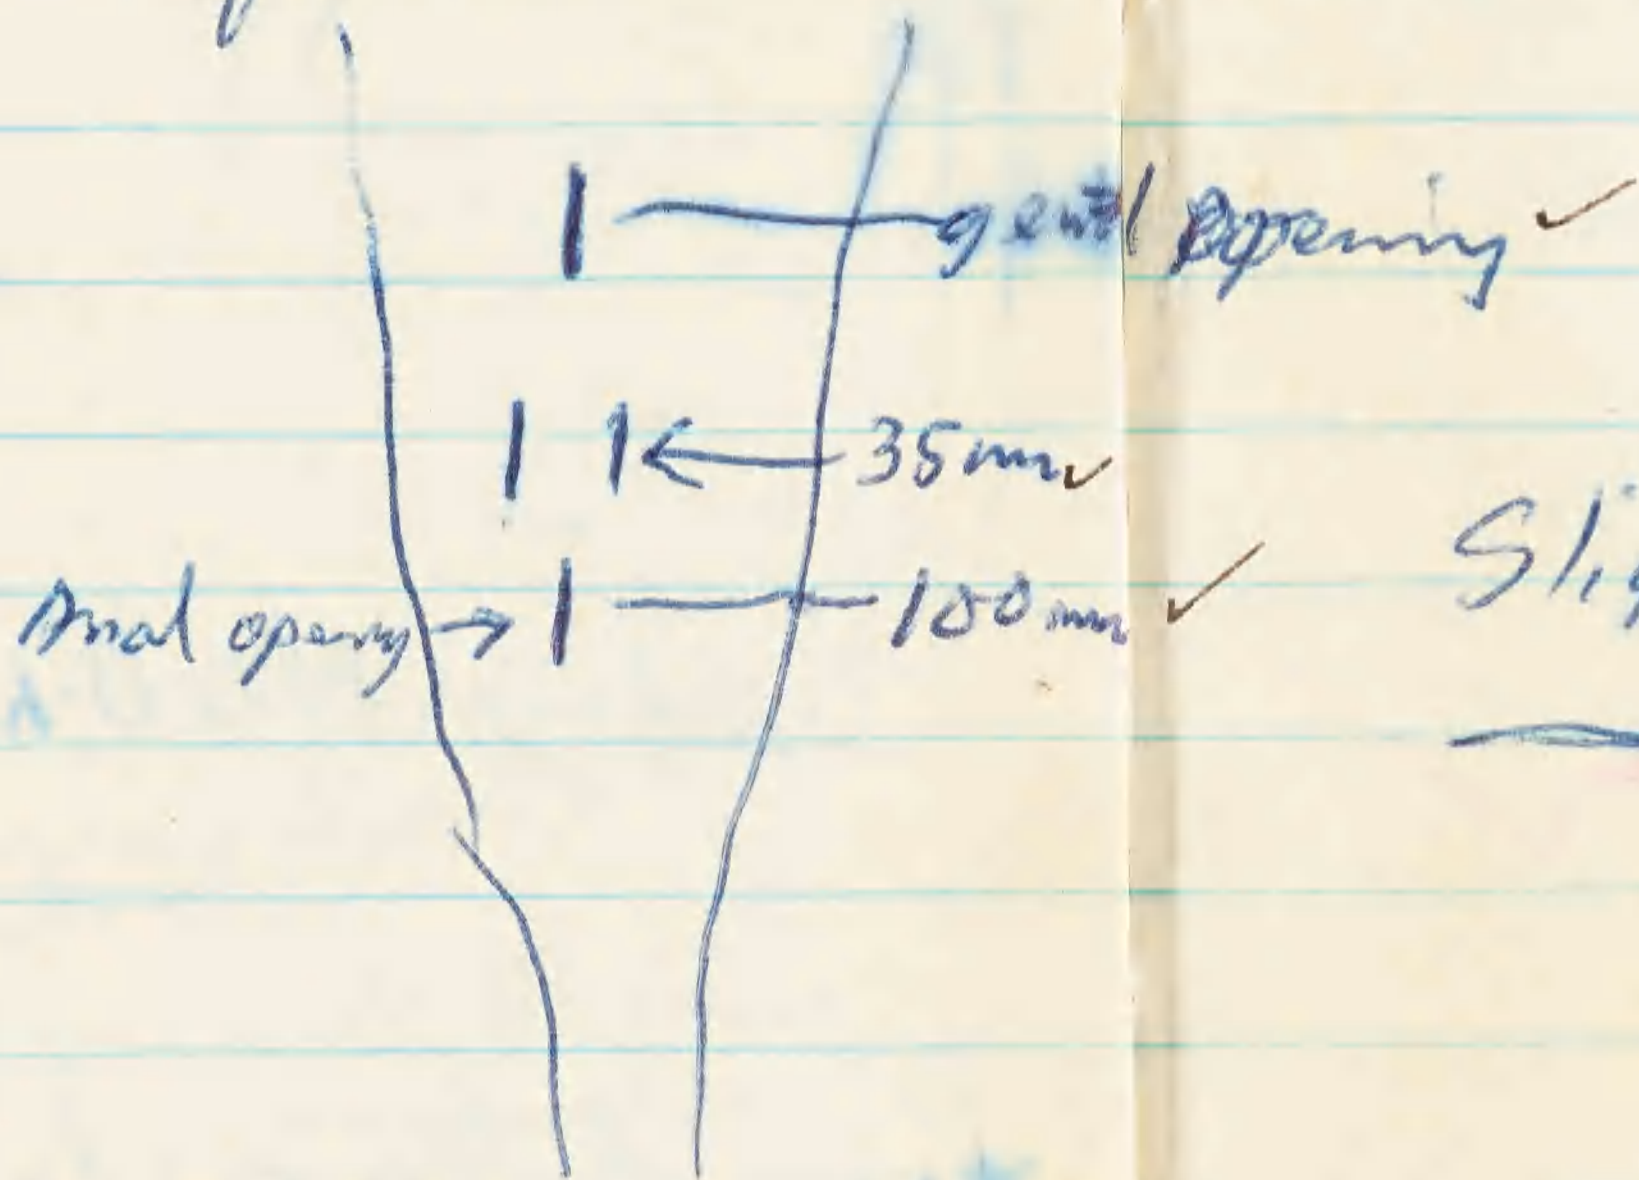 genital opening
35 mm
Anal opening
100 mm